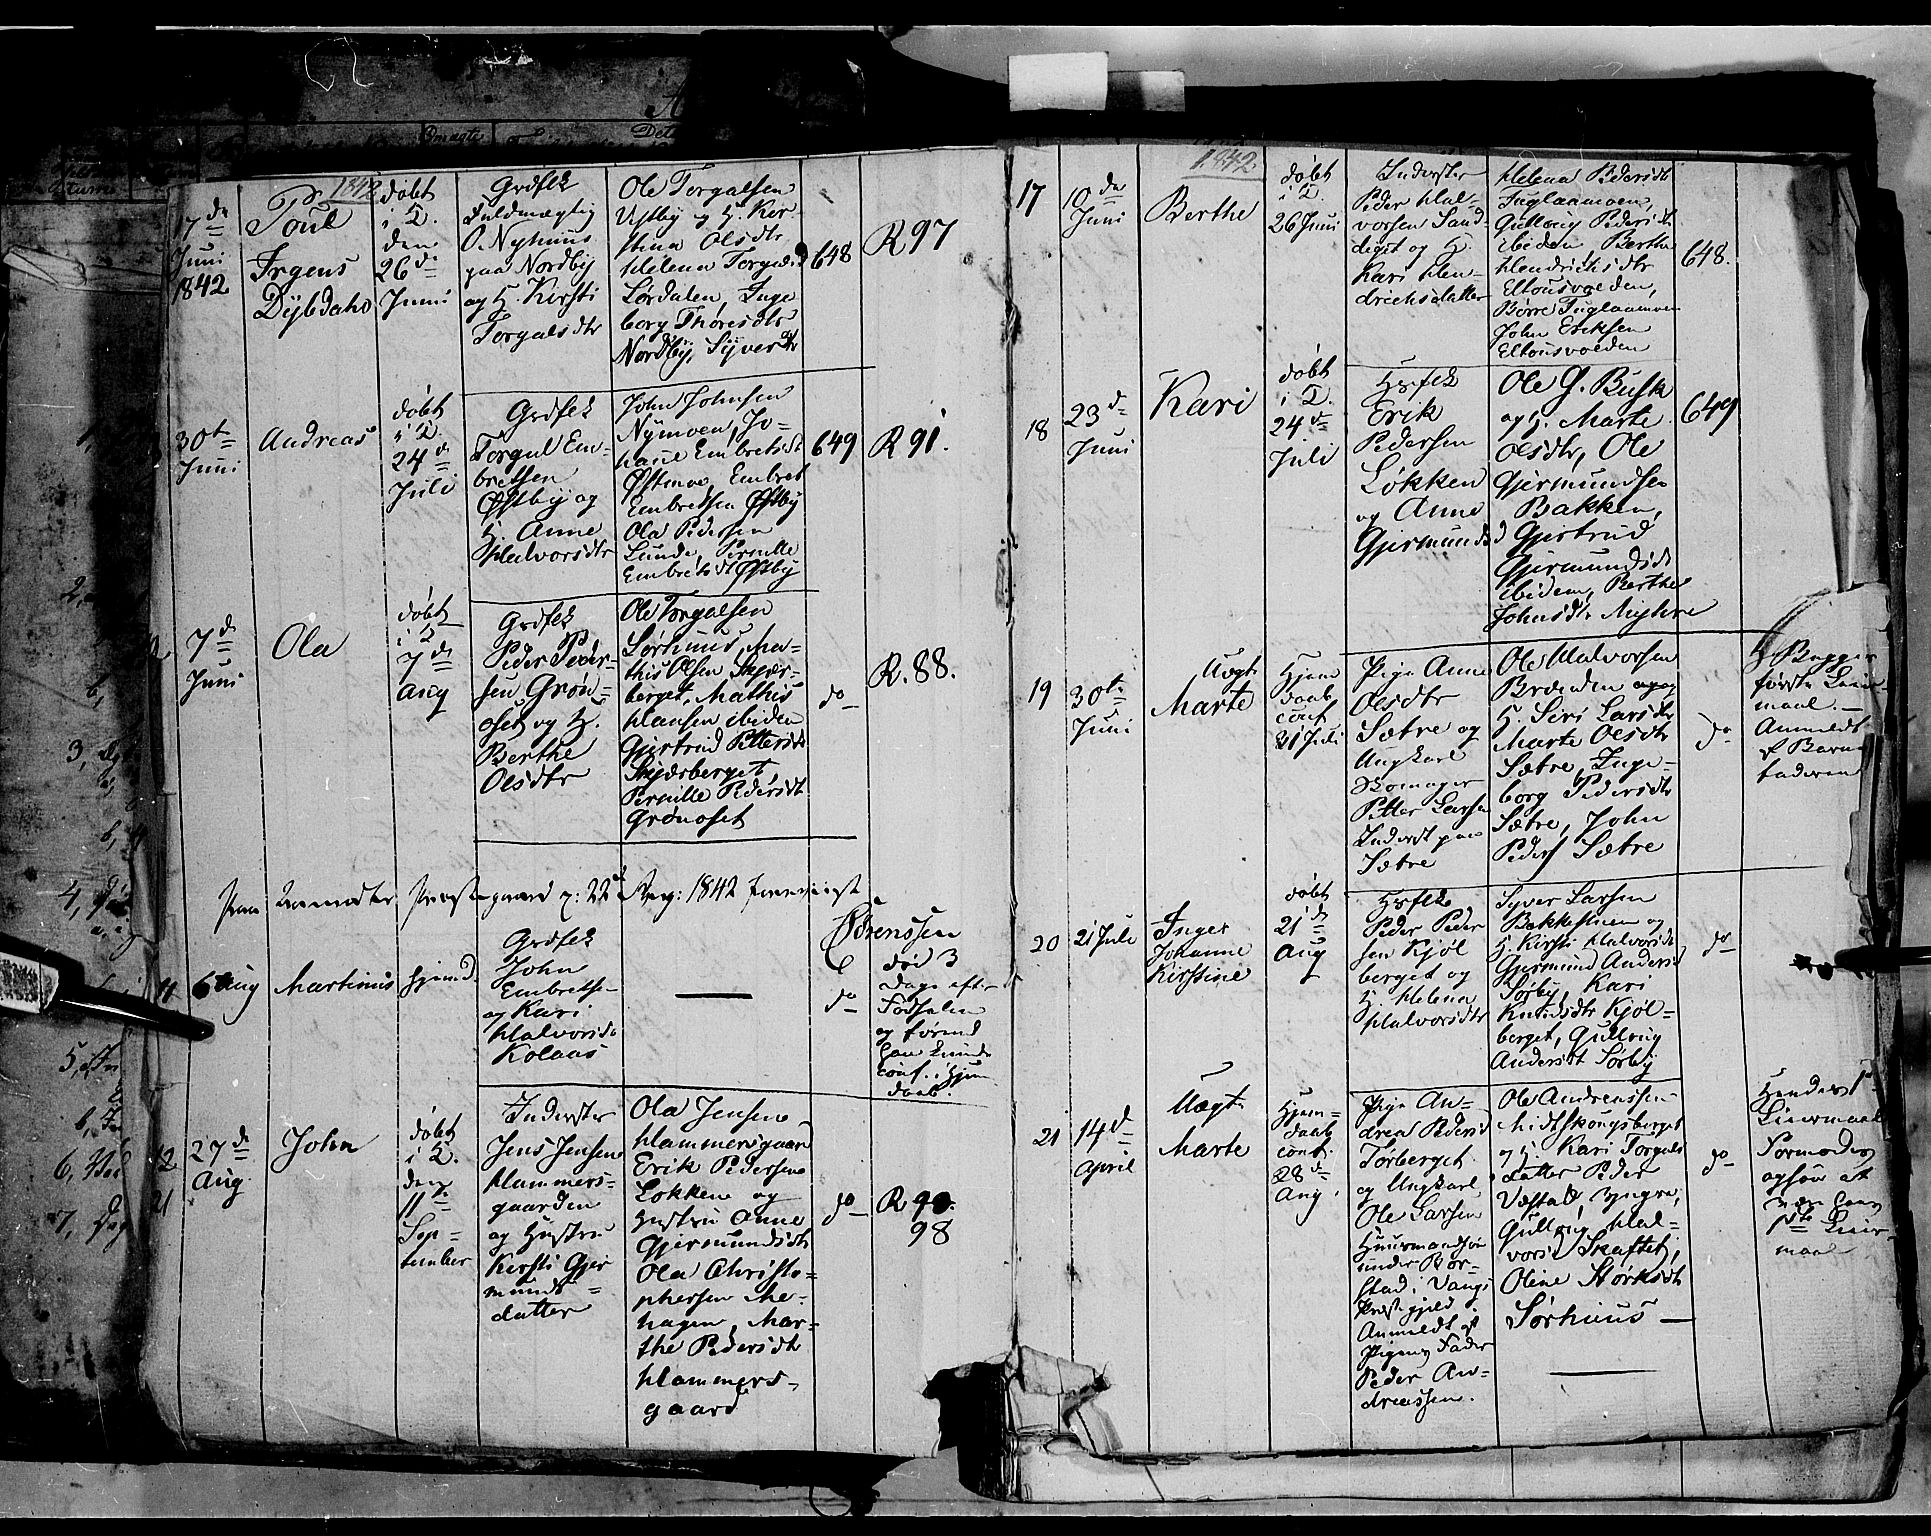 1842
17de
Juni
1842
Poul
Irgens
Dÿbdahl
døbt
i T.
den
26de
Juni
Grdfolk
Fuldmægtig
O. Nyhuus
paa Nordby
og H. Kirsti
Torgalsdtr
Ole Torgalsen
Ustby og H. Kir-
stina Olsdtr
Helena Torgalsd
Lørdalen, Inge
borg Thoresdtr
Nordbÿ, Sÿver
648
R 97
30te
Juni
Andreas
døbt
i T.
24de
Juli
Grdfolk
Torgul Em-
bretsen
Østby og
H. Anne
Halvorsdtr
John Johnsen
Nymoen, Jo-
hane Embretsdt
Østmoe, Embret
Embretsen Østby
Ola Pedersen
Lunde, Pernille
Embretsdt Østby
649
R 91.
7de
Juni
Ola
døbt
i T
7de
Aug
Grdfolk
Peder Peder-
sen Grøn-
oset og H.
Berthe
Olsdtr
Ole Torgalsen
Sørhuus, Ma-
this Olsen Skjær-
berget, Mathis
Hansen ibiden
Gjertrud Pittersdt
Skjærberget
Pernille Pedersdt
Grønoset
do
R. 88.
Paa Præstegaard 22de Aug: 1842
Sørenssen
11
6 Aug
Martinus
hjemd
Grdfolk
John
Embretse-
og Kari
Halvorsdt
Kolaas
—
do
død 3
Dage efter
Fødselen
og førend
han kunde
conf. i Hjem
daab.
12
21
27de
Aug.
John
døbt
i T.
den
11te
Sep-
tember
Inderster
Jens Jensen
Hammers-
gaarden
og Hustru
Kirsti Gjer
munds-
datter
Ola Jensen
Hammersgaard
Erik Pedersen
Løkken og
Hustru Anne
Gjermundsdtr
Ola Christo-
phersen Me-
hagen, Mar-
the Pedersdtr
Hammers-
gaard
do
R 90.
98
1842.
17
10de
Juni
Berthe
døbt
i T.
26 Juni
Inderster
Peder Hal-
vorsen Sand-
diget og H.
Kari Hen-
drichsdatter
Helena Pedersdt
Fuglaamoen,
Gullbrig Pedersdt
ibiden Berthe
Hendrichsdtr
Eltousvolden,
Børre Fuglaamoen
John Eriksen
Eltousvolden
648.
18
23de
Juni
Kari
døbt
i T.
24de
Juli
Hsfolk
Erik
Pedersen
Løkken
og Anne
Gjermundsd
Ole G. Busk
og H. Marte
Olsdtr, Ole
Gjermundsen
Bakken,
Gjertrud
Gjermundsdt
ibidem, Berthe
Johnsdtr Myhre
649
19
30te
Juni
Uægt
Marte
Hjem
daab
conf
31 Juli
Pige Anne
Olsdtr
Sætre og
Ungkarl
Skomager
Pitter Larsen
Inderst paa
Sætre
Ole Halvorsen
Brænden og
H. Siri Larsdtr
Marte Olsdtr
Sætre, Inge-
borg Pedersdtr
Sætre, John
Peders Sætre
do
Begges
første Leier-
maal. –
Anmeldt
af Barne
faderen
20
21 Juli
Inger
Johanne
Kirstine
døbt
21de
Aug
Hsfolk
Peder Peder
sen Kjøl
berget og
H. Helena
Halvorsdtr
Syver Larsen
Bakkestuen og
H. Kirsti Halvorsdt
Gjermund Anders
Sørby, Kari
Knudsdtr Kjøl-
berget, Gullbrig
Andersdt Sørby
do
21
14de
April
Uægt
Marte
Hjem-
daab
conf.
28de
Aug.
Pige An-
drea Pedersd
Tørberget
og Ungkarl
Ole Larsen
Huusmandssøn
under Ror-
stad i Vangs
Præstegjeld.
Anmeldt af
Pigens Fader
Peder An-
dreassen.
Ole Andreassen
Midtskougsberget
og H. Kari Torgals
datter Peder
Væstad, yngre,
Gullbrig Hal-
vorsd Skaftet,
Oline Størksdt
Sørhuus –
do
Hendes 1ste
Leiermaal
Formodes
ogsaa at
være hans
1ste Leier-
maal